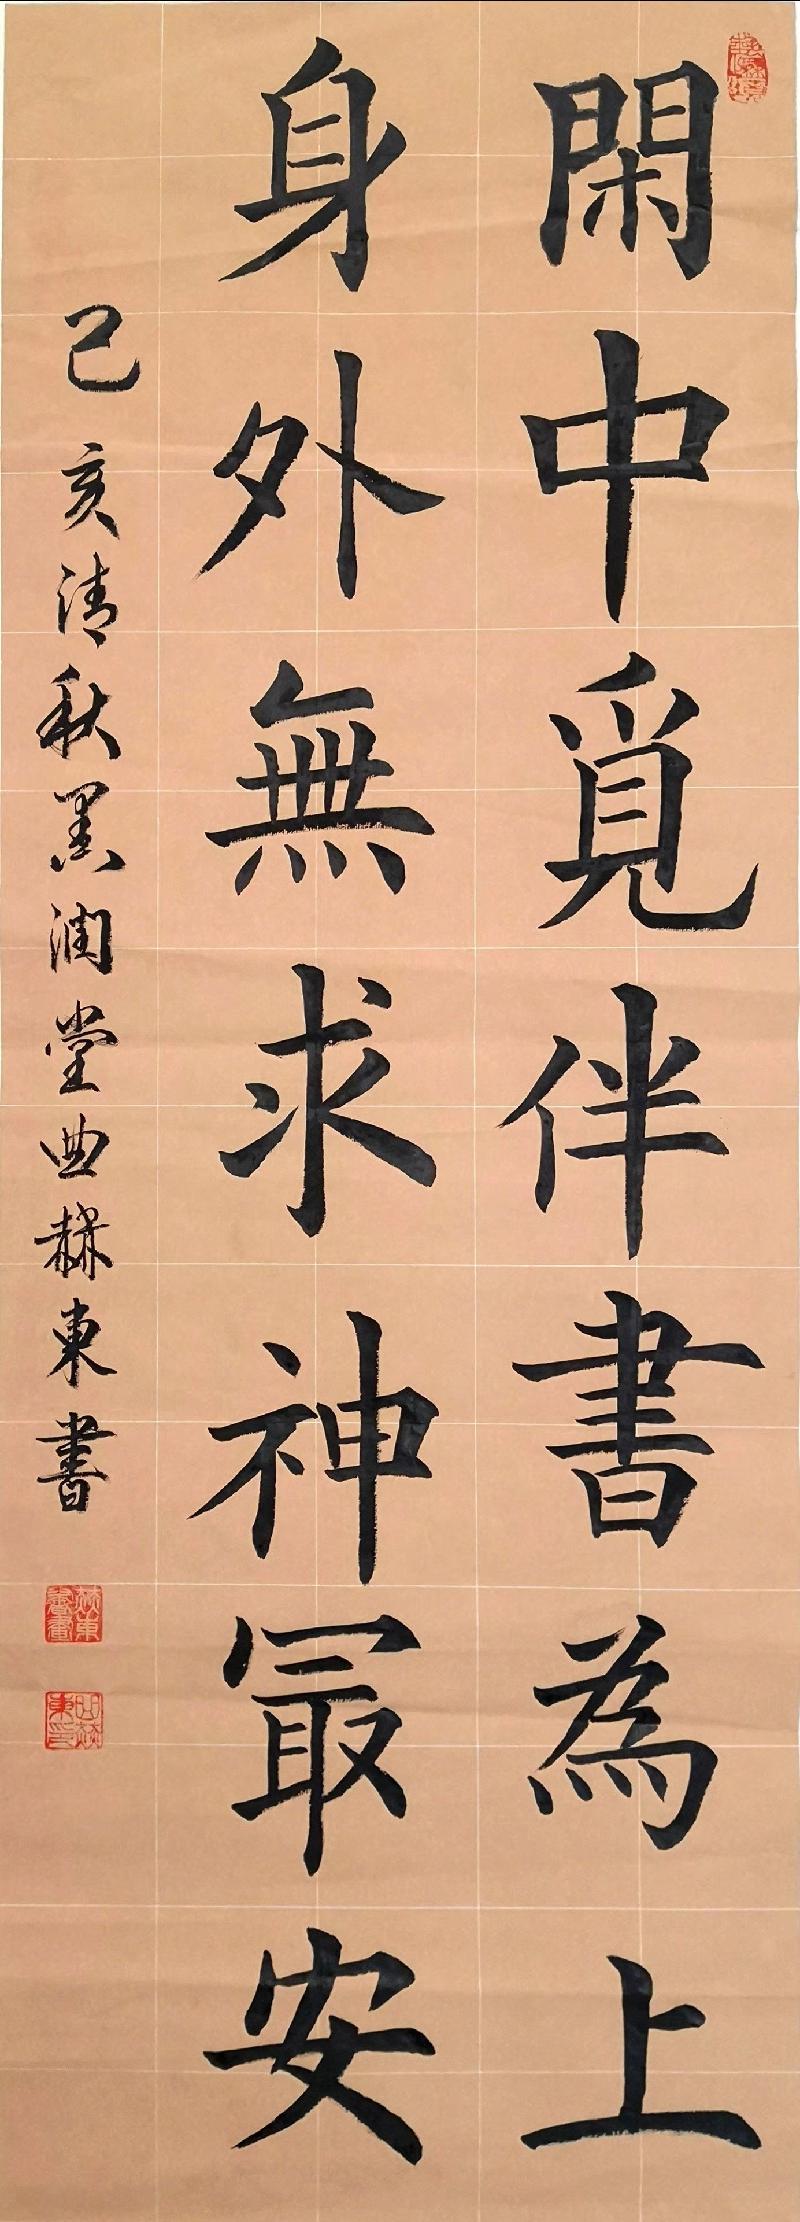 閑中覓伴書為上
身外無求神冣安
己亥清秋墨润堂曲赫東書